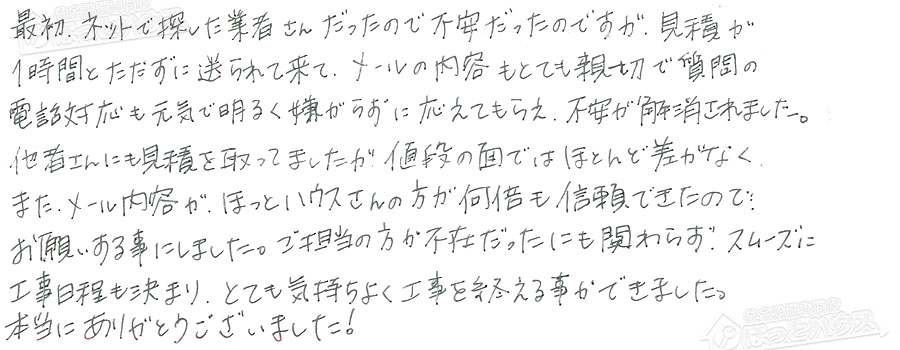 最初、ネットで探した業者さんだったので不安だったのですが、見積が
1時間とたたずに送られて来て、メールの内容もとても親切で質問の
電話対応も元気で明るく嫌がらずに応えてもらえ、不安が解消されました。
他者さんにも見積を取ってましたが、値段の面ではほとんど差がなく、
また、メール内容が、ほっとハウスさんの方が何倍も信頼できたので、
お願いする事にしました。ご担当の方が不在だったにも関わらず、スムーズに
工事日程も決まり、とても気持ちよく工事を終える事ができました。
本当にありがとうございました!
住宅設備専門店
ほっとハウス